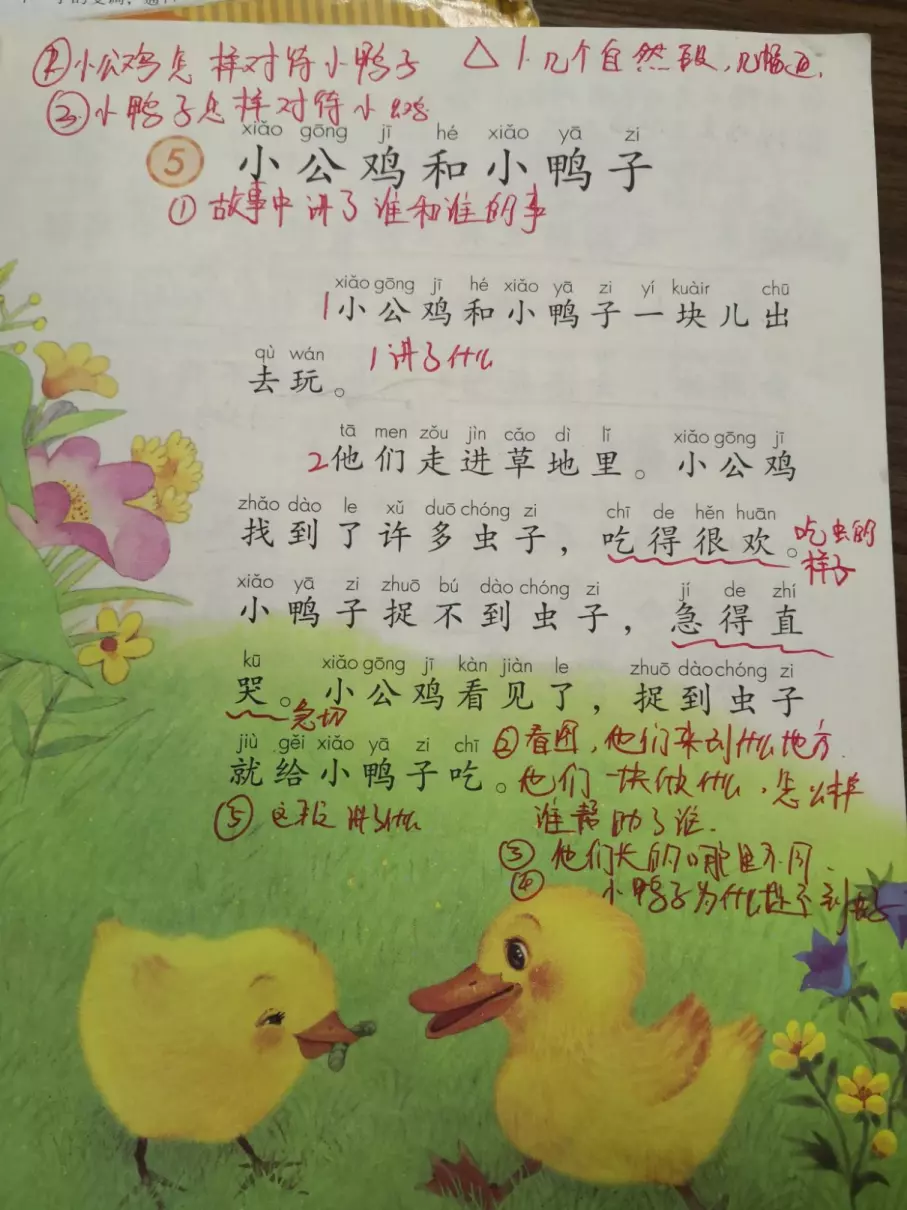 ②小公鸡怎样对待小鸭子 △1.几个自然段,几幅画.
③小鸭子怎样对待小公鸡
xiǎo gōng jī hé xiǎo yā zi
5 小公鸡和小鸭子
①故事中讲了谁和谁的事
xiǎo gōng jī hé xiǎo yā zi yí kuàir chū
1小公鸡和小鸭子一块儿出
qù wán
去玩。 1讲了什么
tā men zǒu jìn cǎo dì lǐ xiǎo gōng jī
2他们走进草地里。小公鸡
zhǎo dào le xǔ duō chóng zi chī de hěn huān
找到了许多虫子,吃得很欢。吃虫的
样子
xiǎo yā zi zhuō bú dào chóng zi jí de zhí
小鸭子捉不到虫子,急得直
kū xiǎo gōng jī kàn jiàn le zhuō dào chóng zi
哭。小公鸡看见了,捉到虫子
急切
jiù gěi xiǎo yā zi chī ②看图,他们来到什么地方.
就给小鸭子吃。他们一块做什么,怎么样
⑤这段讲了什么 谁帮助了谁.
③他们长的哪里不同.
④小鸭子为什么捉不到虫子